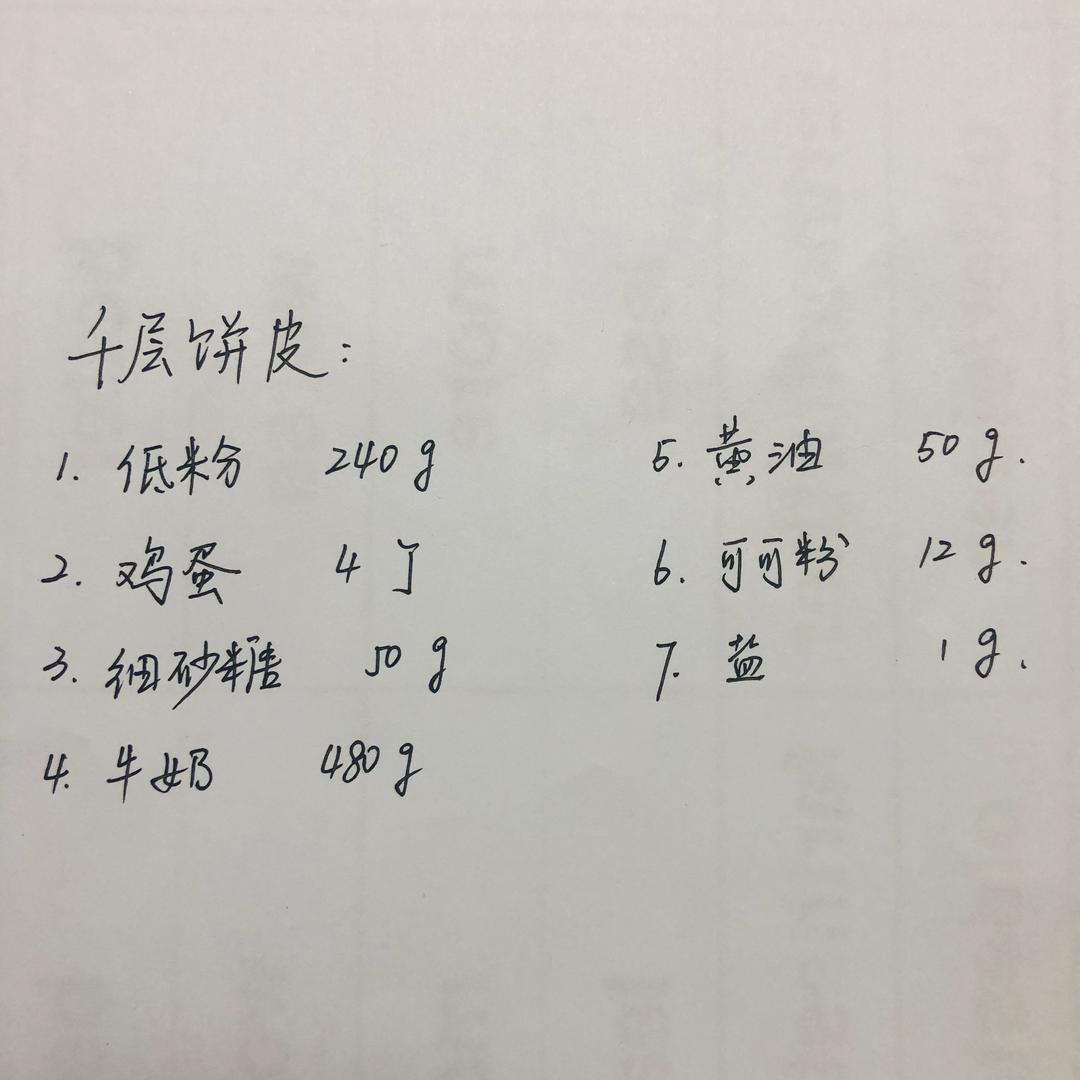 千层饼皮：
1. 低粉 240g
2. 鸡蛋 4个
3. 细砂糖 50g
4. 牛奶 480g
5. 黄油 50g.
6. 可可粉 12g.
7. 盐 1g.